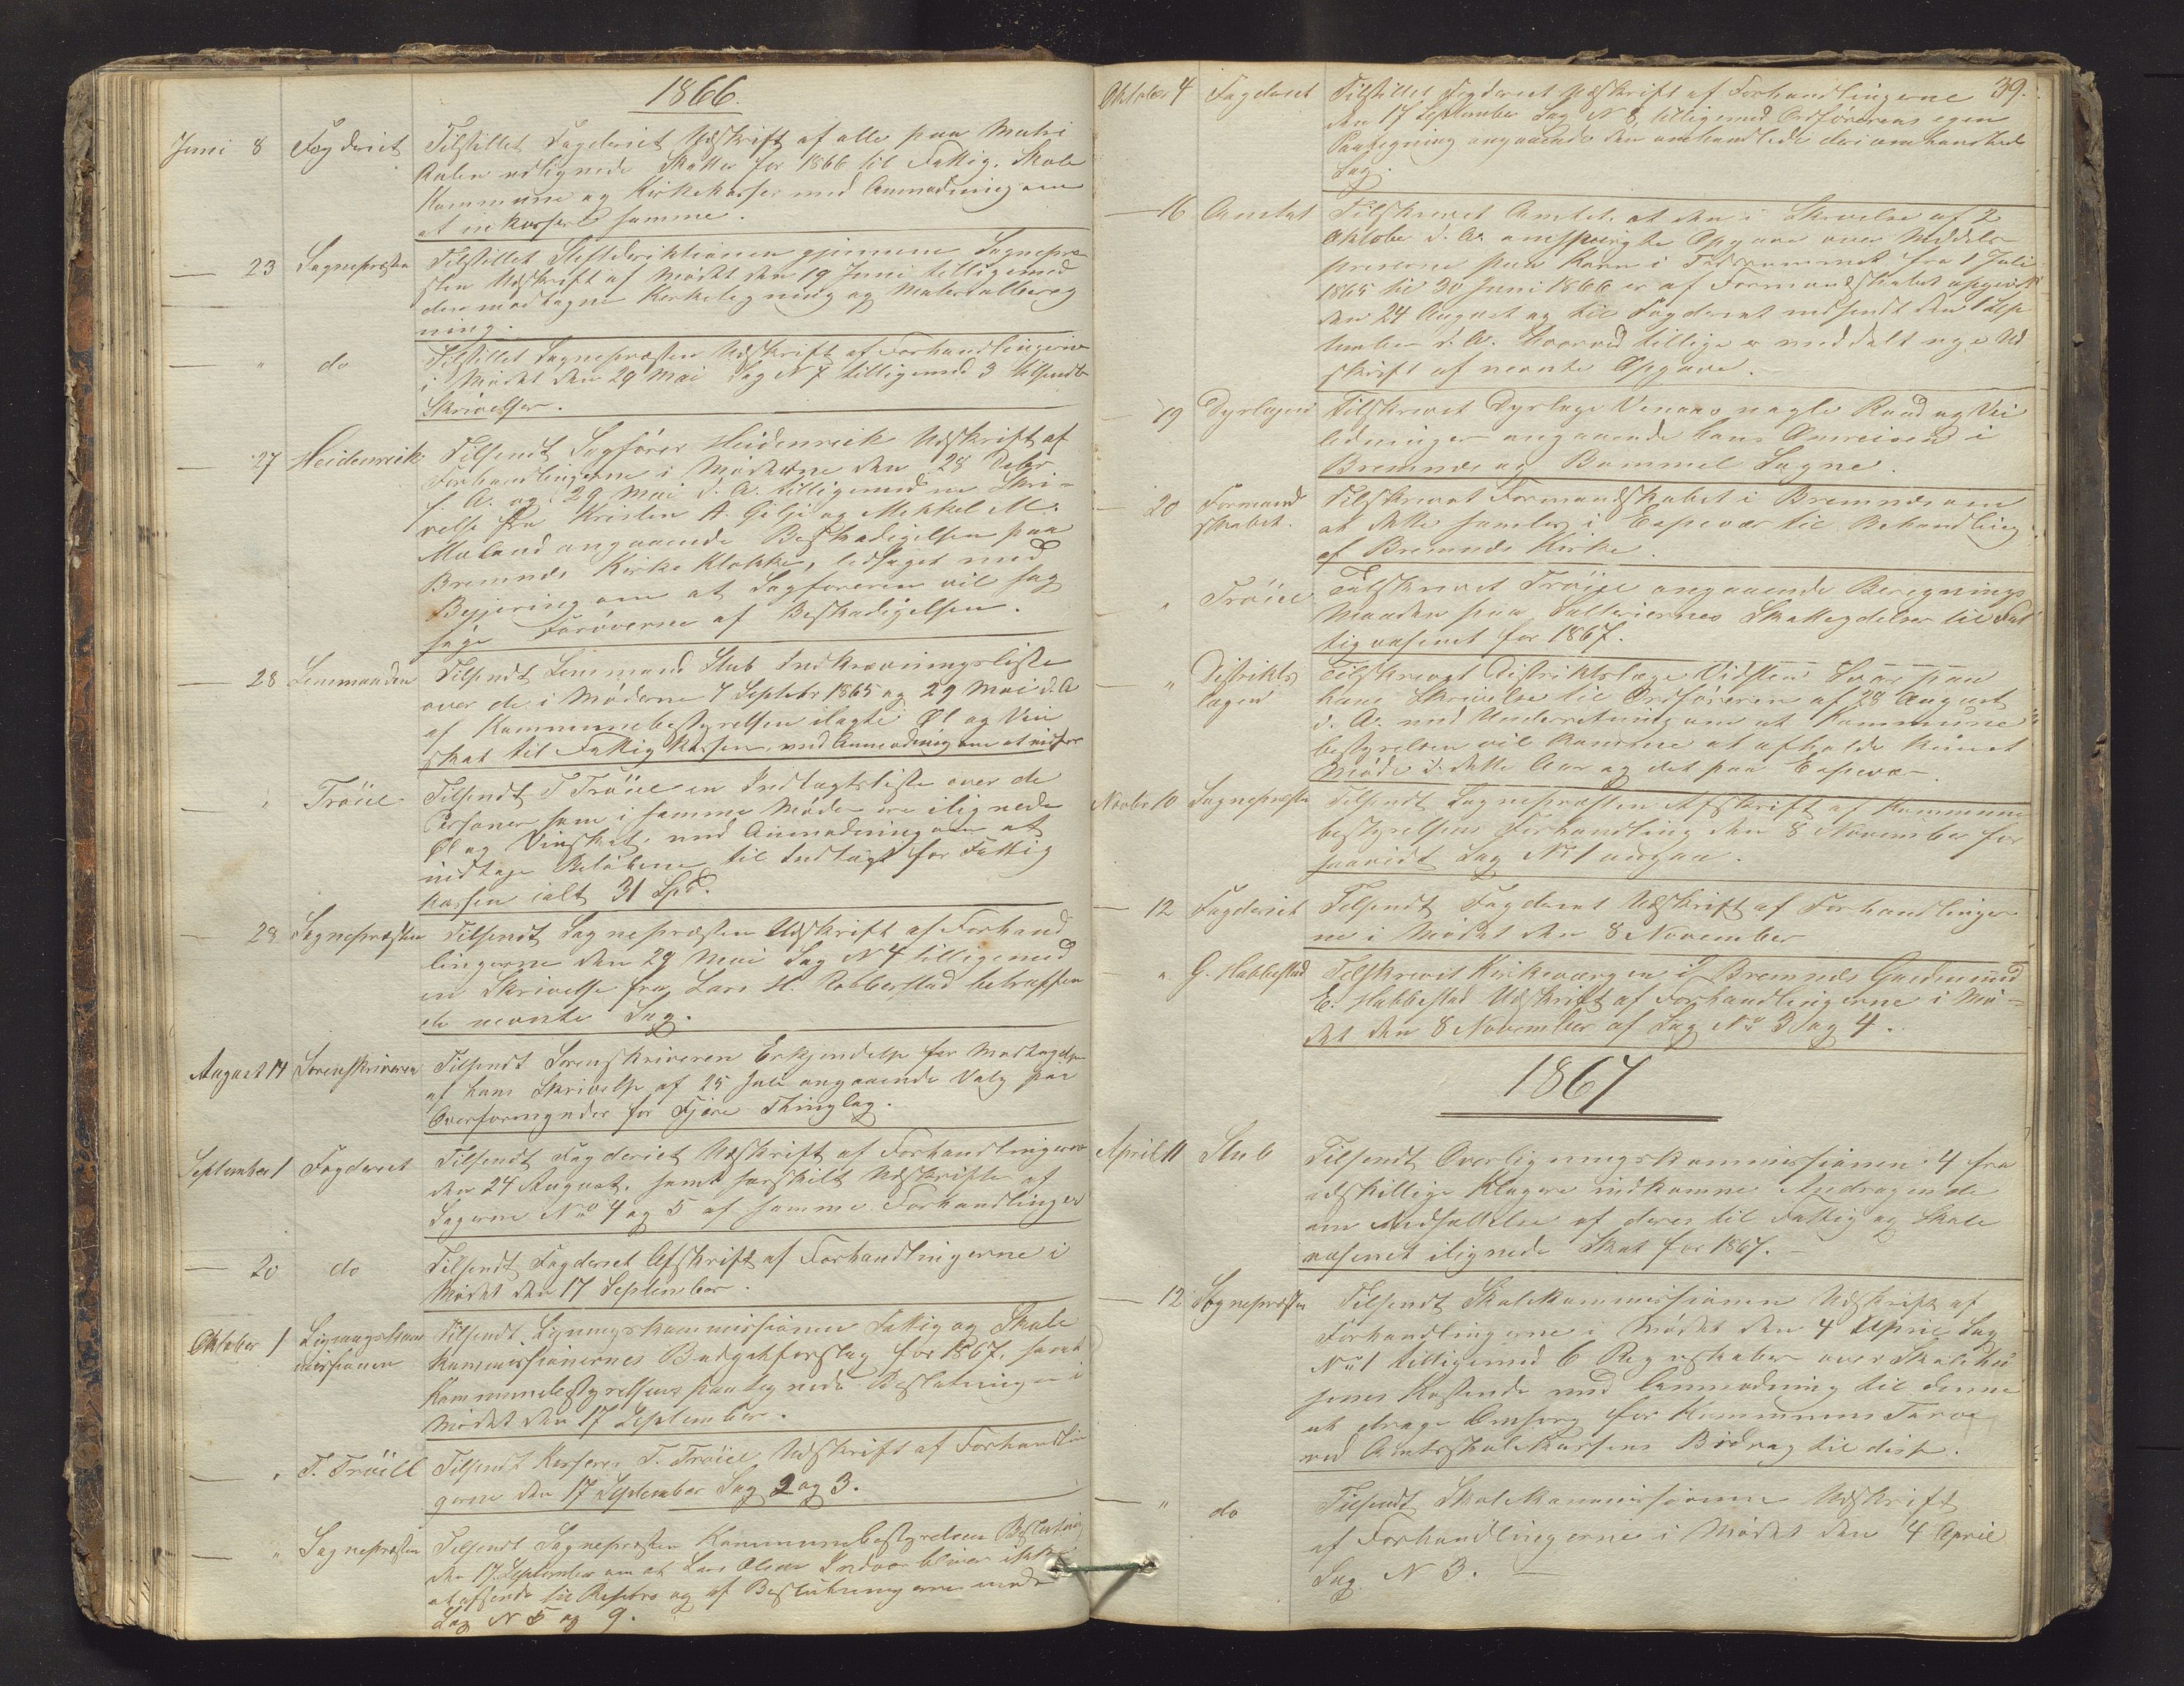 1866.
Juni 8 Fogderiet Tilstillet Fogderiet Udskrift af alle paa Matri
kulen udlignede Skatter for 1866 til Fattig, Skole
Kommune og Kirkekasser med Anmodning om
at inkassere samme.
— 23 Sognepræsten Tilstillet Stiftdirektionen gjennem Sognepræ
sten Udskrift af Mødet den 19 Juni tilligemed
den modtagne Kirketegning og Materialbereg
ning.
— " do Tilstillet Sognepræsten Udskrift af Forhandlingerne
i Mødet den 29 Mai Sag N 7 tilligemed 3 tilsendte
Skrivelser.
— 27 Heidenreik Tilsendt Sagfører Heidenreik Udskrift af
Forhandlingerne i Møderne den 28 Debr
f. A. og 29 Mai d. A. tilligemed en Skri-
velse fra Kristen A. Gilje og Mekkel M.
Moland angaaende Beskadigelsen paa
Bremnæs Kirke Klokke, ledsaget med
Begjering om at Sagføreren vil sag
søge Udøverne af Beskadigelsen.
— 28 Lensmanden Tilsendt Lensmand Stub Indkrævningsliste
over de i Møderne 7 Septebr 1865 og 29 Mai d. A
af Kommunebestyrelsen ilagte Øl og Vin
skat til Fattigkassen, med Anmodning om at indkr
— " Trøiel Tilsendt T Trøiel en Indtægtsliste over de
Personer som i samme Møde ere ilignede
Øl og Vinskat, med Anmodning om at
indtage Beløbene til Indtægt for Fattig
kassen ialt 31 Spd.
— 29 Sognepræsten Tilsendt Sognepræsten Udskrift af Forhand
lingerne den 29 Mai Sag N 4 tilligemed
en Skrivelse fra Lars H. Robberstad betræffen
de nevnte Sag.
August 14 Sorenskriveren Tilsendt Sorenskriveren Erkjendelse for Modtagelse
af hans Skrivelse af 25 Juli angaaende Valg paa
Overformynder for Fjære Thinglag.
September 1 Fogderiet Tilsendt Fogderiet Udskrift af Forhandlingerne
den 24 August, samt særskilt Udskrifter af
Sagerne No 4 og 5 af samme Forhandlinger
— 20 do Tilsendt Fogderiet Afskrift af Forhandlingerne i
Mødet den 17 September.
Oktober 1 Ligningskom
missionen Tilsendt Ligningskommissionen Fattig og Skole
kommissionernes Budgetforslag for 1867, samt
Kommunebestyrelsens paategnede Beslutninger i
Mødet den 17 September.
— " T. Trøiell Tilsendt Kasserer T. Trøiel Udskrift af Forhandlin
gerne den 17 September Sag 2 og 3.
— " Sognepræsten Tilsendt Sognepræsten Kommunebestyrelsens Beslutning
den 17. September om at Lars Olsen Indvær bliver ikke
at afsende til Røsebro og af Beslutningerne under
Sag N 5 og 9.
39.
Oktober 4 Fogderiet Tilstillet Fogderiet Udskrift af Forhandlingerne
den 17 September Sag N 8, tilligemed Ordførerens egen
Paategning angaaende den omhandlede deri omhandlede
Sag.
— 16 Amtet Tilskrevet Amtet, at den i Skrivelse af 2
Oktober d. A. omspurgte Opgave over Middels-
priserne paa Korn i Tidsrummet fra 1 Juli
1865 til 30 Juni 1866 er af Formandskabet opgivet
den 24 August og til Fogderiet indsendt den 1 Sep
tember d. A. Hvorved tillige er meddelt nye Ud
skrift af nevnte Opgave.
— 19 Dyrlægen Tilskrevet Dyrlæge Vinæs nogle Raad og Vei
ledninger angaaende hans Omreise i
Bremnæs og Bømmel Sogne.
— 20 Formand
skabet. Tilskrevet Formandskabet i Bremnæs om
at dette samles i Espevær til Behandling
af Bremnæs Kirke.
— " Trøiel Tilskrevet Trøiel angaaende Beregnings
Maaden paa Salteriernes Skatteydelser til Fat
tigvæsenet for 1867.
— " Distrikts
lægen Tilskrevet Distriktslæge Vidsteen Svar paa
hans Skrivelse til Ordføreren af 28 August
d. A. med Underretning om at Kommune
bestyrelsen vil komme at afholde kun et
Møde i dette Aar og det paa Espevær.
Novbr 10 Sognepræsten Tilsendt Sognepræsten Afskrift af Kommune
bestyrelsens Forhandling den 8 November for
saavidt Sag No 1 angaa.
— 12 Fogderiet Tilsendt Fogderiet Udskrift af Forhandlinger
ne i Mødet den 8 November
— " G. Habbestad Tilskrevet Kirkeværgen i Bremnæs Gudmund
E. Habbestad Udskrift af Forhandlingerne i Mø-
det den 8 November af Sag No 3 og 4.
1867
April 11 Stub Tilsendt Overligningskommissionen 4 fra
adskillige Klagere indkomne Andragende
om Nedsættelse af deres til Fattig og Skole
væsenet ilignede Skat for 1867.
— 12 Sognepræsten Tilsendt Skolekommissionen Udskrift af
Forhandlingerne i Mødet den 4 April Sag
No 1 tilligemed 6 Regnskaber over Skolehu
senes Kostende med Anmodning til denne
at drage Omsorg for Kommunens Tarv
ved Amtsskolekassens Bidrag til disse.
— " do Tilsendt Skolekommissionen Udskrift
af Forhandlingerne i Mødet den 4 April
Sag N 3.